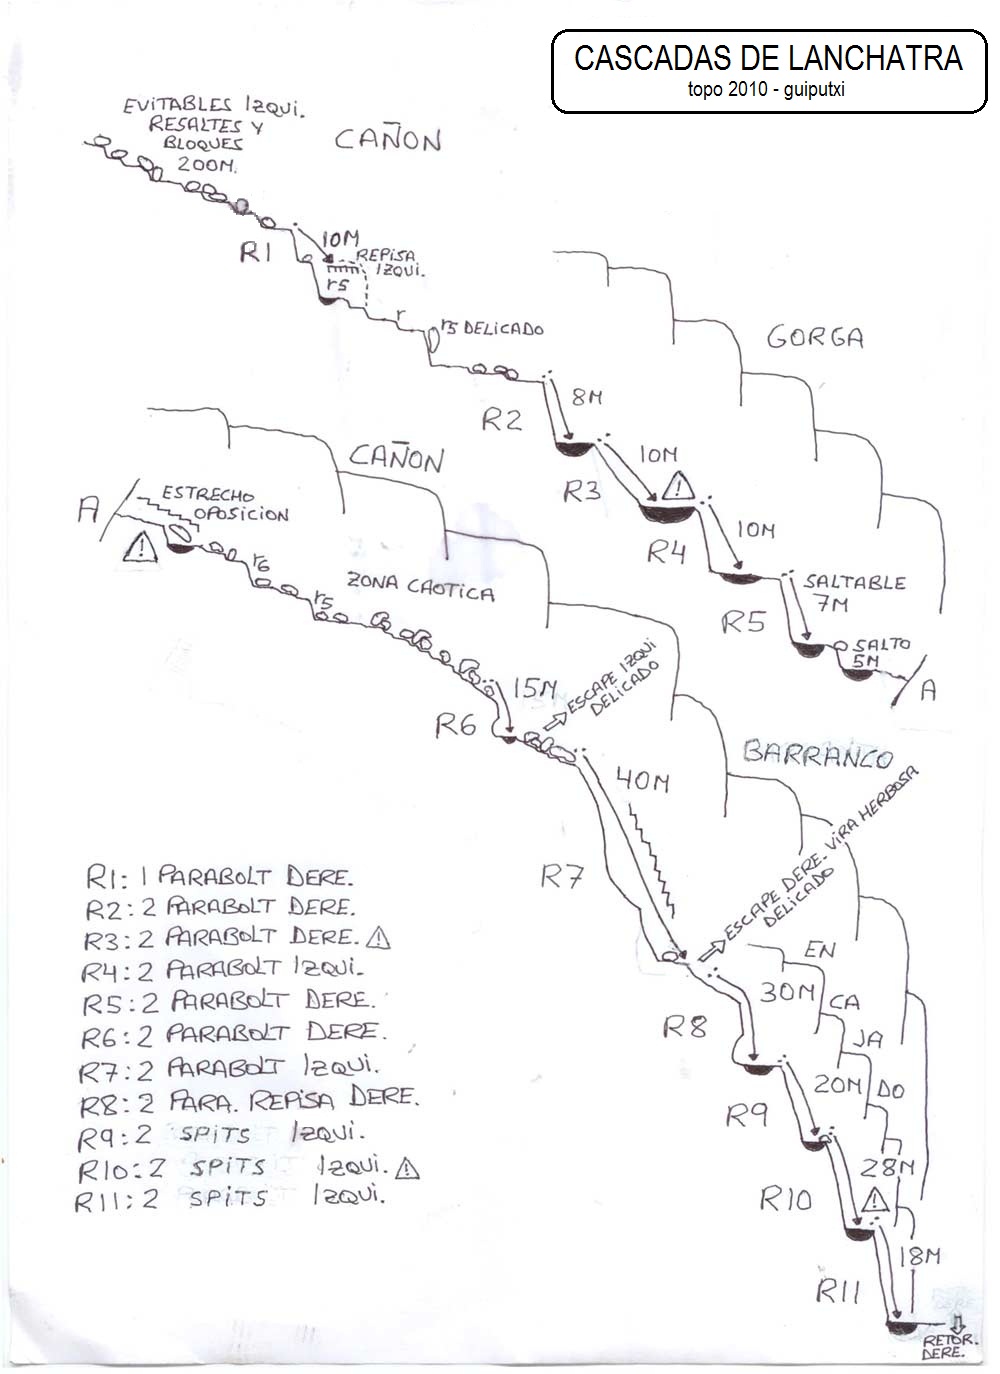 CASCADAS DE LANCHATRA
topo 2010 - guiputxi
EVITABLES IZQUI.
RESALTES Y
BLOQUES
200M.
CAÑON
R1
10M
REPISA
IZQUI.
r5
r
r5 DELICADO
GORGA
R2
8M
R3
10M
R4
10M
R5
SALTABLE
7M
SALTO
5M
A
CAÑON
A
ESTRECHO
OPOSICION
r6
r5
ZONA CAOTICA
R6
15M
ESCAPE IZQUI
DELICADO
BARRANCO
R7
40M
ESCAPE DERE. VIRA HERBOSA
DELICADO
EN
CA
JA
DO
R8
30M
R9
20M
R10
28M
R11
18M
RETOR.
DERE.
R1: 1 PARABOLT DERE.
R2: 2 PARABOLT DERE.
R3: 2 PARABOLT DERE.
R4: 2 PARABOLT IZQUI.
R5: 2 PARABOLT DERE.
R6: 2 PARABOLT DERE.
R7: 2 PARABOLT IZQUI.
R8: 2 PARA. REPISA DERE.
R9: 2 SPITS IZQUI.
R10: 2 SPITS IZQUI.
R11: 2 SPITS IZQUI.